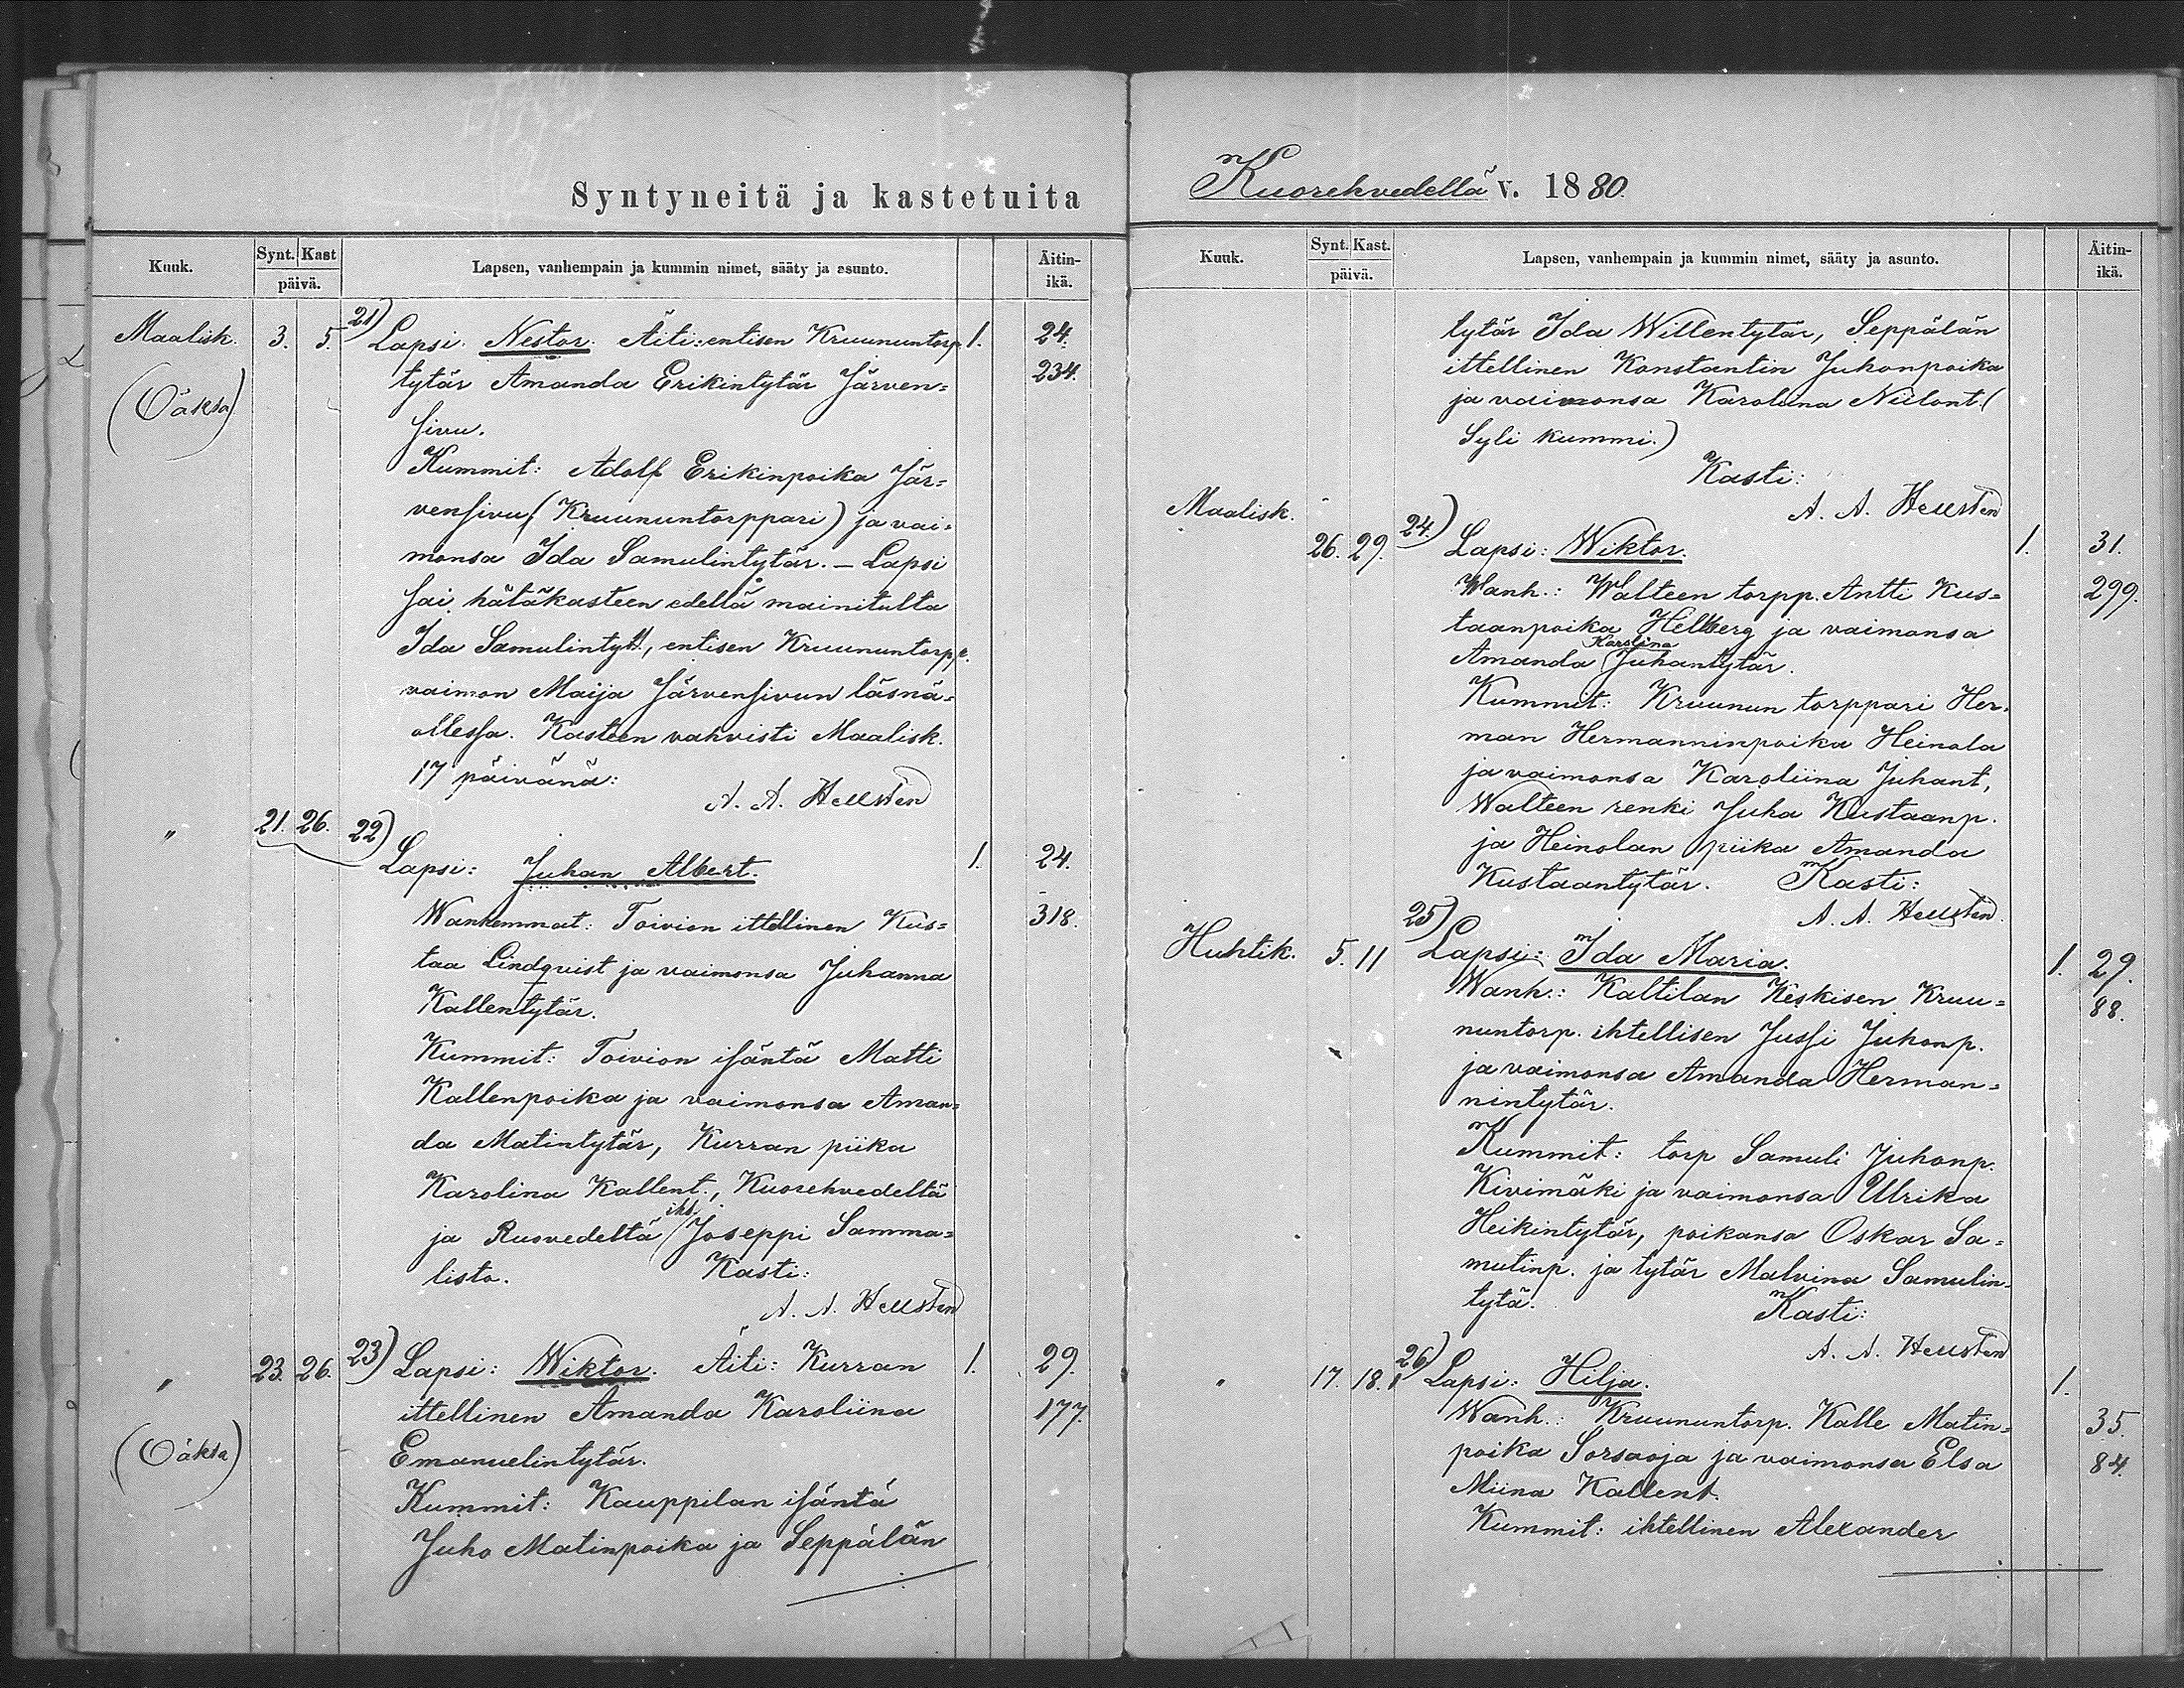 Syntyneitä ja kastetuita
Kuuk. Synt. Kast päivä. Lapsen, vanhempain ja kummin nimet, sääty ja asunto. Äitin-ikä.
Maalisk. 3. 5. 21) Lapsi. Nestor. Äiti: entisen Kruununtorp. 1. 24.
tytär Amanda Erikintytär Järven= 234.
(Oäkta)
sivu.
Kummit: Adolf Erikinpoika Jär=
vensivu, (Kruununtorppari) ja vai=
monsa Ida Samulintytär. — Lapsi
sai hätäkasteen edellä mainitulta
Ida Samulintyt., entisen Kruununtorpp.
vaimon Maija Järvensivun läsnä=
ollessa. Kasteen vahvisti Maalisk.
17 päivänä:
A. A. Hellsten
" 21. 26. 22)
Lapsi: Juhan Albert. 1. 24.
Wanhemmat: Toivion ittellinen Kus= 318.
taa Lindqvist ja vaimonsa Juhanna
Kallentytär.
Kummit: Toivion isäntä Matti
Kallenpoika ja vaimonsa Aman=
da Matintytär, Kurran piika
Karolina Kallent., Kuorehvedeltä
ja Ruovedeltä iht. Joseppi Samma=
listo. Kasti:
A. A. Hellsten
" 23. 26. 23) Lapsi: Wiktor. Äiti: Kurran 1. 29.
ittellinen Amanda Karoliina 177.
(Oäkta) Emanuelintytär.
Kummit: Kauppilan isäntä
Juho Matinpoika ja Seppälän
Kuorehvedellä v. 1880.
Kuuk. Synt. Kast. päivä. Lapsen, vanhempain ja kummin nimet, sääty ja asunto. Äitin-ikä.
tytär Ida Willentytär, Seppälän
ittellinen Konstantin Juhonpoika
ja vaimonsa Karoliina Niilont. (
Syli kummi.)
Kasti:
A. A. Hellsten
Maalisk.
26. 29. 24.) Lapsi: Wiktor. 1. 31.
Wanh.: Walteen torpp. Antti Kus= 299.
taanpoika Hellberg ja vaimonsa
Amanda Karolina Juhantytär.
Kummit: Kruunun torppari Her=
man Hermanninpoika Heinola
ja vaimonsa Karoliina Juhant,
Walteen renki Juha Kustaanp.
ja Heinolan piika Amanda
Kustaantytär. Kasti:
A. A. Hellsten.
Huhtik. 5. 11 25) Lapsi: Ida Maria. 1. 29.
Wanh.: Kaltilan Keskisen Kruu= 88.
nuntorp. ihtellisen Jussi Juhonp.
ja vaimonsa Amanda Herman=
nintytär.
Kummit: torp Samuli Juhonp.
Kivimäki ja vaimonsa Ulrika
Heikintytär, poikansa Oskar Sa=
mulinp. ja tytär Malvina Samulin=
tytä. Kasti:
A. A. Hellsten
" 17. 18. 26) Lapsi: Hilja. 1.
Wanh.: Kruununtorp. Kalle Matin= 35.
poika Sorsaoja ja vaimonsa Elsa 84.
Miina Kallent.
Kummit: ihtellinen Alexander